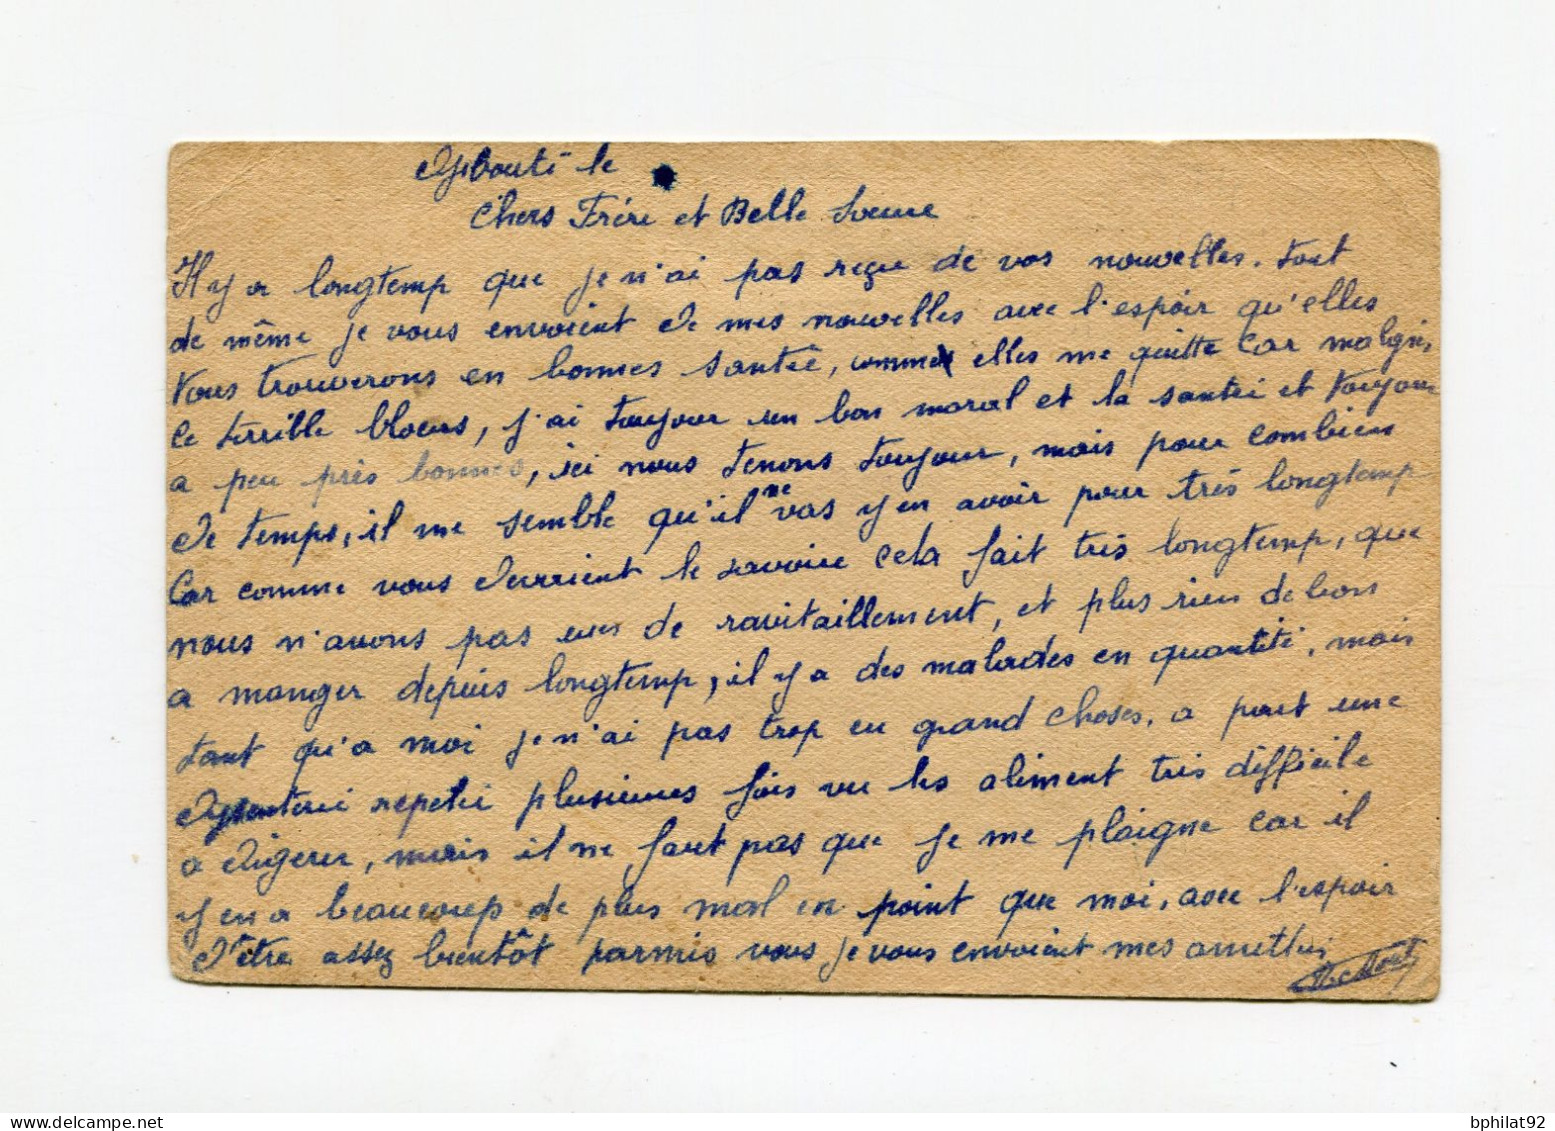 Djibouti le
Chers Frére et Belle Soeure
Il y a longtemp que je n'ai pas reçue de vos nouvelles. tout
de même je vous envoient de mes nouvelles avec l'espoir qu'elles
vous trouverons en bonnes santée, comme elles me quitte car malgré
le terrible blocus, j'ai toujour un bon moral et la santéi et toujour
a peu près bonnes, ici nous tenons toujour, mais pour combien
de temps, il me semble qu'il ne vas y en avoir pour très longtemp
Car comme vous deverient le savoire cela fait très longtemp, que
nous n'avons pas eus de ravitaillement, et plus rien de bon
a manger depuis longtemp, il y a des malades en quantité, mais
tant qu'a moi je n'ai pas trop eu grand choses, a part une
dysenterei repetéi plusieures fois vu les aliment très difficile
a digerer, mais il ne faut pas que je me plaigne car il
y en a beaucoup de plus mal en point que moi, avec l'espoir
d'être assez bientôt parmis vous je vous envoient mes amitiéi
bphilat92